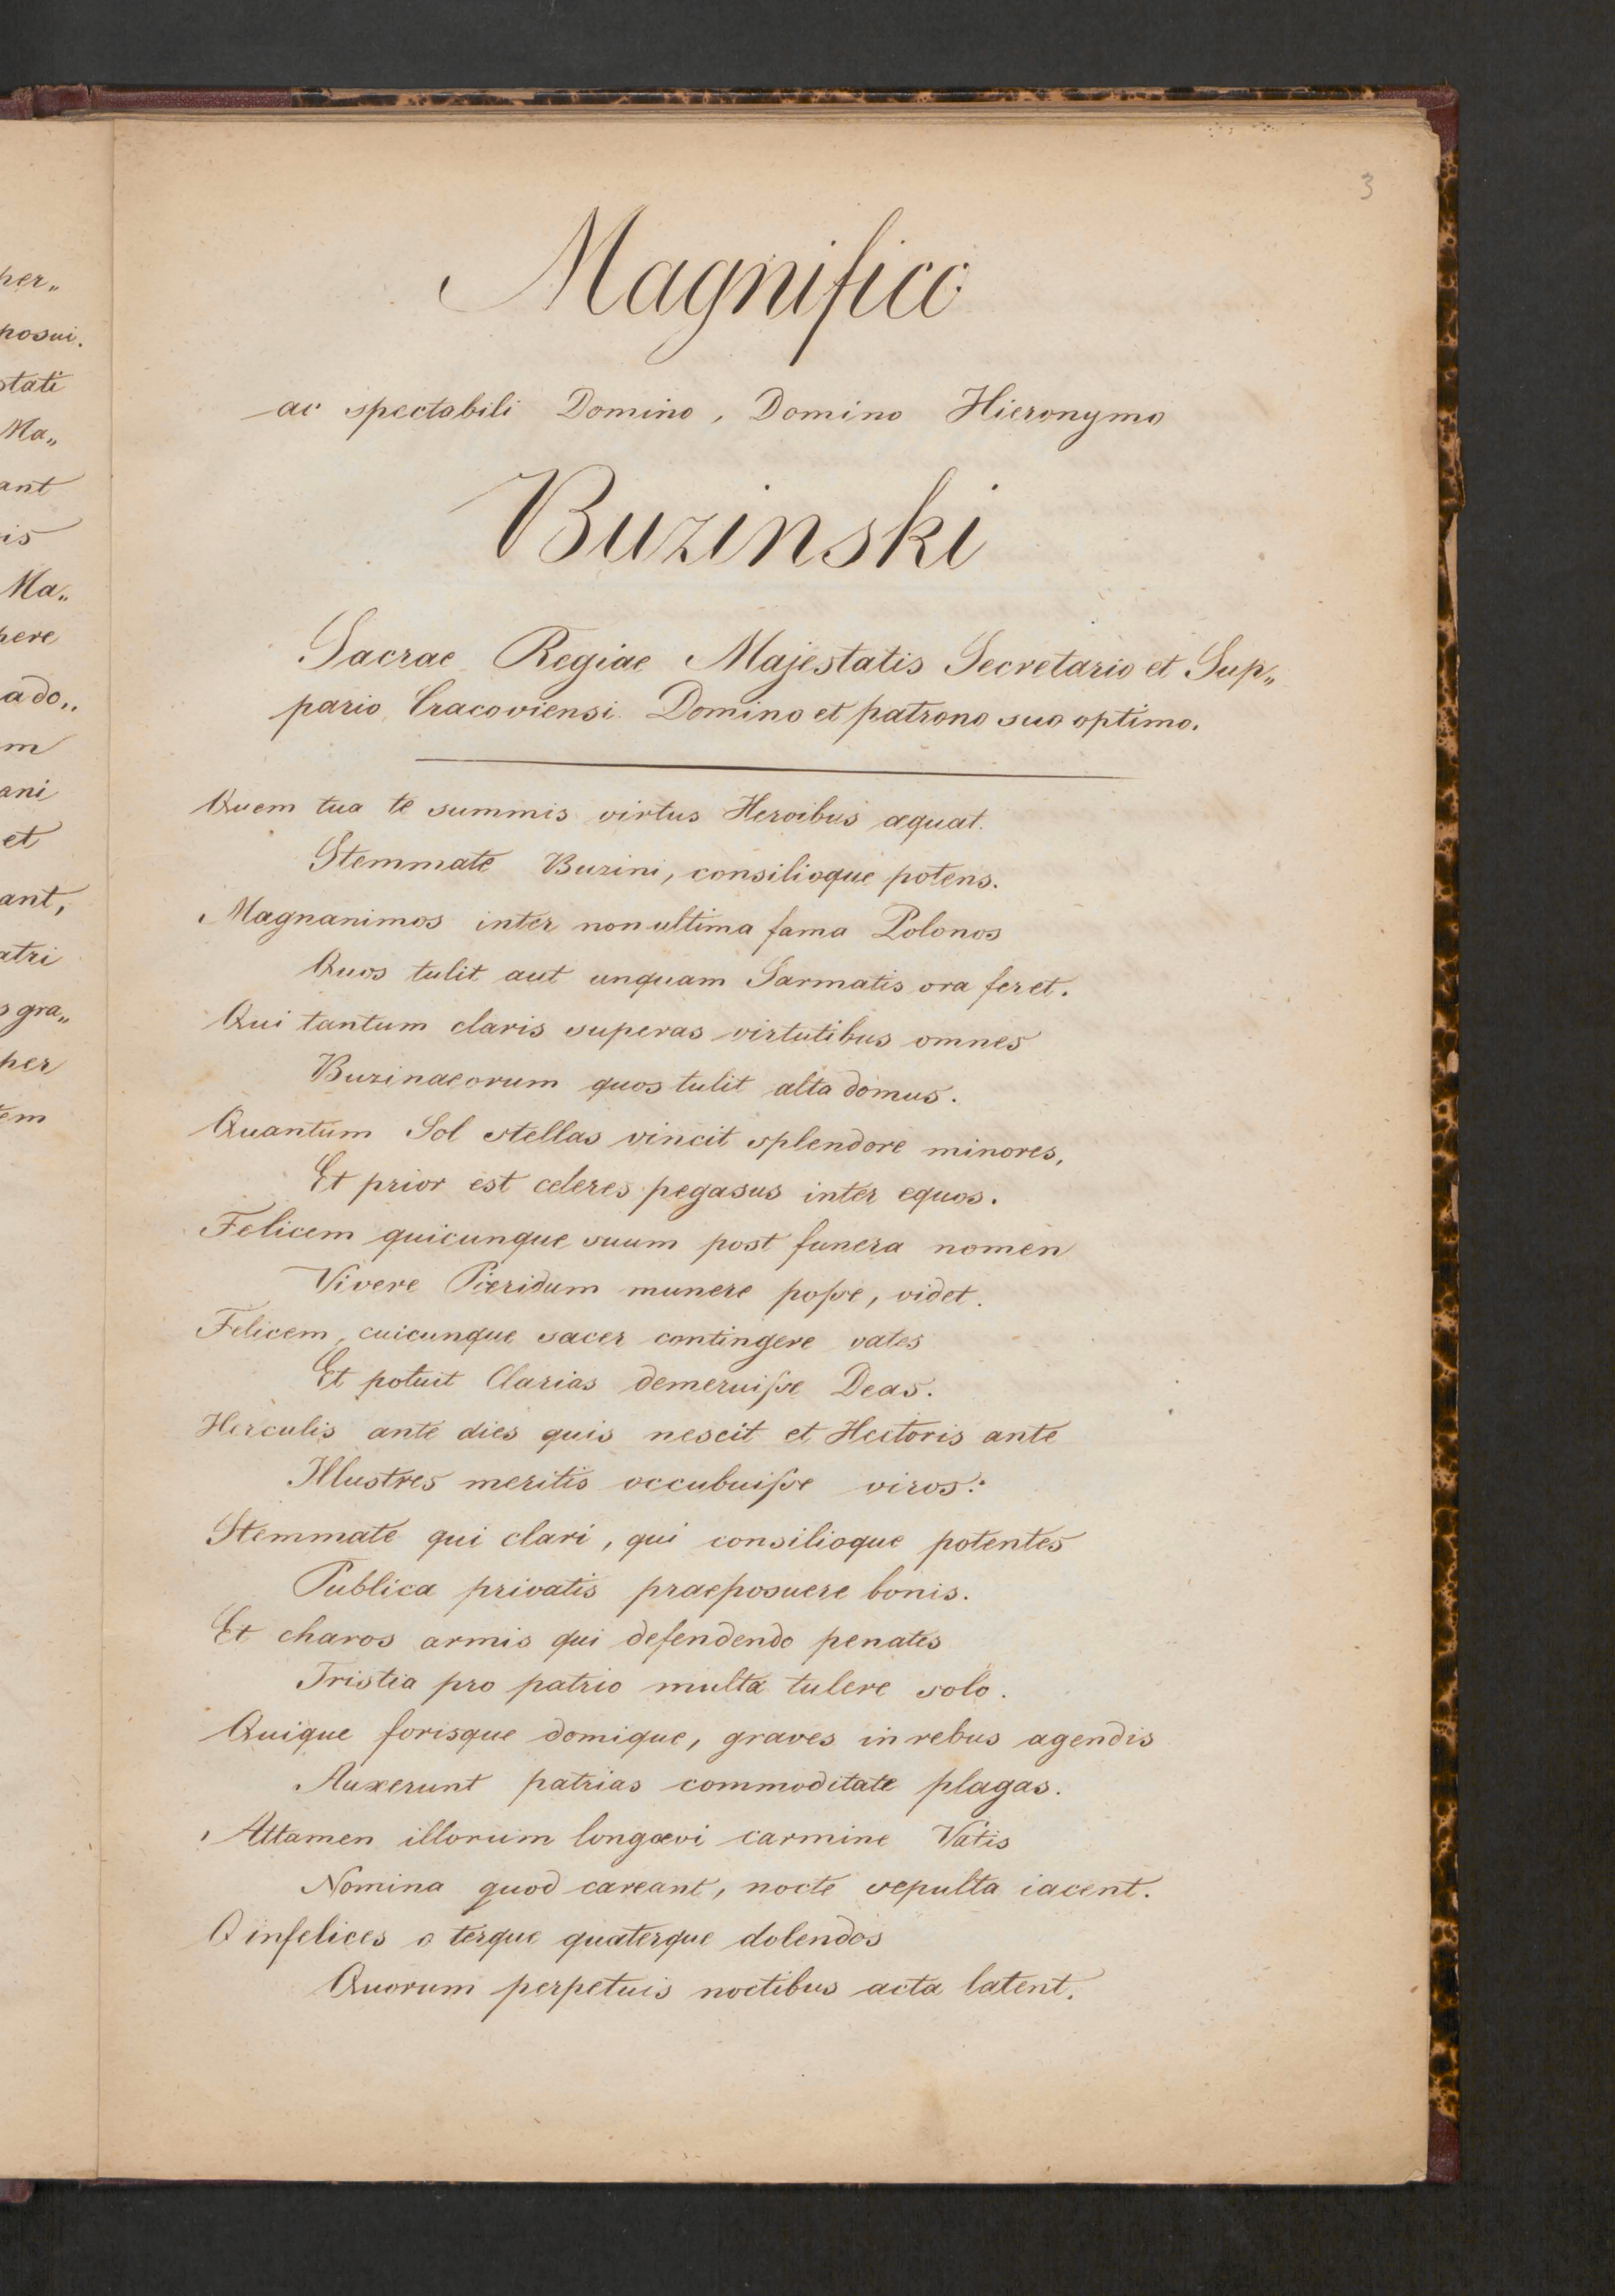 3
Magnifico
ac spectabili Domino, Domino Hieronymo
Buzinski
Sacrae Regiae Majestatis Secretario et Sup„
pario Cracoviensi Domino et patrono suo optimo.
Quem tua te summis virtus Heroibus æquat.
Stemmate Buzini, consilioque potens.
Magnanimos inter non ultima fama Polonos
Quos tulit aut unquam Sarmatis ora feret.
Qui tantum claris superas virtutibus omnes
Buzinaeorum quos tulit alta domus.
Quantum Sol stellas vincit splendore minores,
Et prior est celeres pegasus inter equos.
Felicem quicunque suum post funera nomen
Vivere Pieridum munere poſse, videt.
Felicem, cuicunque sacer contingere vates
Et potuit Clarias demeruiſse Deas.
Herculis ante dies quis nescit et Hectoris ante
Illustres meritis occubuiſse viros:
Stemmate qui clari, qui consilioque potentes
Publica privatis praeposuere bonis.
Et charos armis qui defendendo penates
Tristia pro patrio multa tulere solo.
Quique forisque domique, graves in rebus agendis
Auxerunt patrias commoditate plagas.
Attamen illorum longævi carmine Vatis
Nomina quod careant, nocte sepulta iacent.
O infelices o terque quaterque dolendos
Quorum perpetuis noctibus acta latent.
her„
posui.
stati
Ma„
ant
is
Ma„
here
a do„
m
ani
et
ant,
atri
s gra„
her
tem